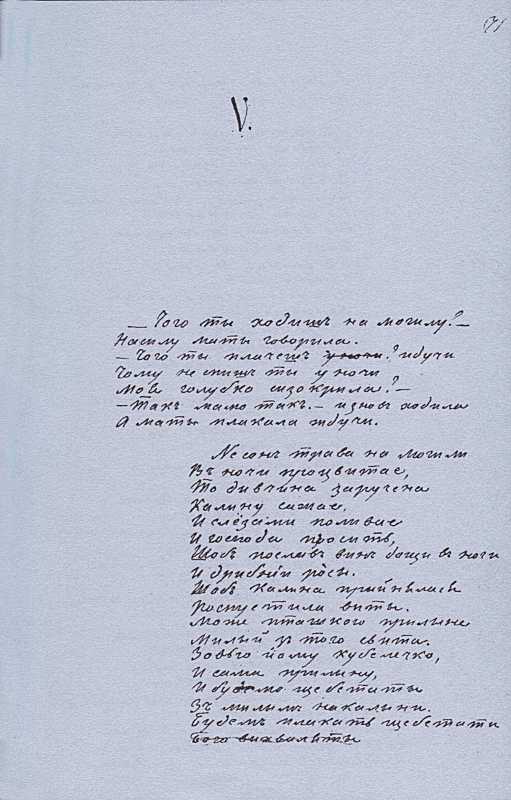 V.
— Чого ты ходишъ на могилу? —
Насилу маты говорила.
— Чого ты плачешъ у ночи? йдучи
Чому не спишъ ты у ночи
Моя голубко сизокрила? —
— Такъ мамо такъ. — изновъ ходила
А маты плакала ждучи.
Не сонъ трава на могили
Въ ночи процвитае,
То дивчина заручена
Калину сажае.
И слёзами поливае
И господа просить,
Шобъ пославъ винъ дощи въ ночи
И дрибніи росы.
Шобъ калина прийнялась
Роспустила виты.
Може пташкою прилыне
Милый зъ того свита.
Зовью йому кубелечко,
И сама прилыну,
И будемо щебетаты
Зъ милымъ на калыни.
Будемъ плакать щебетати
Його вихвалиты